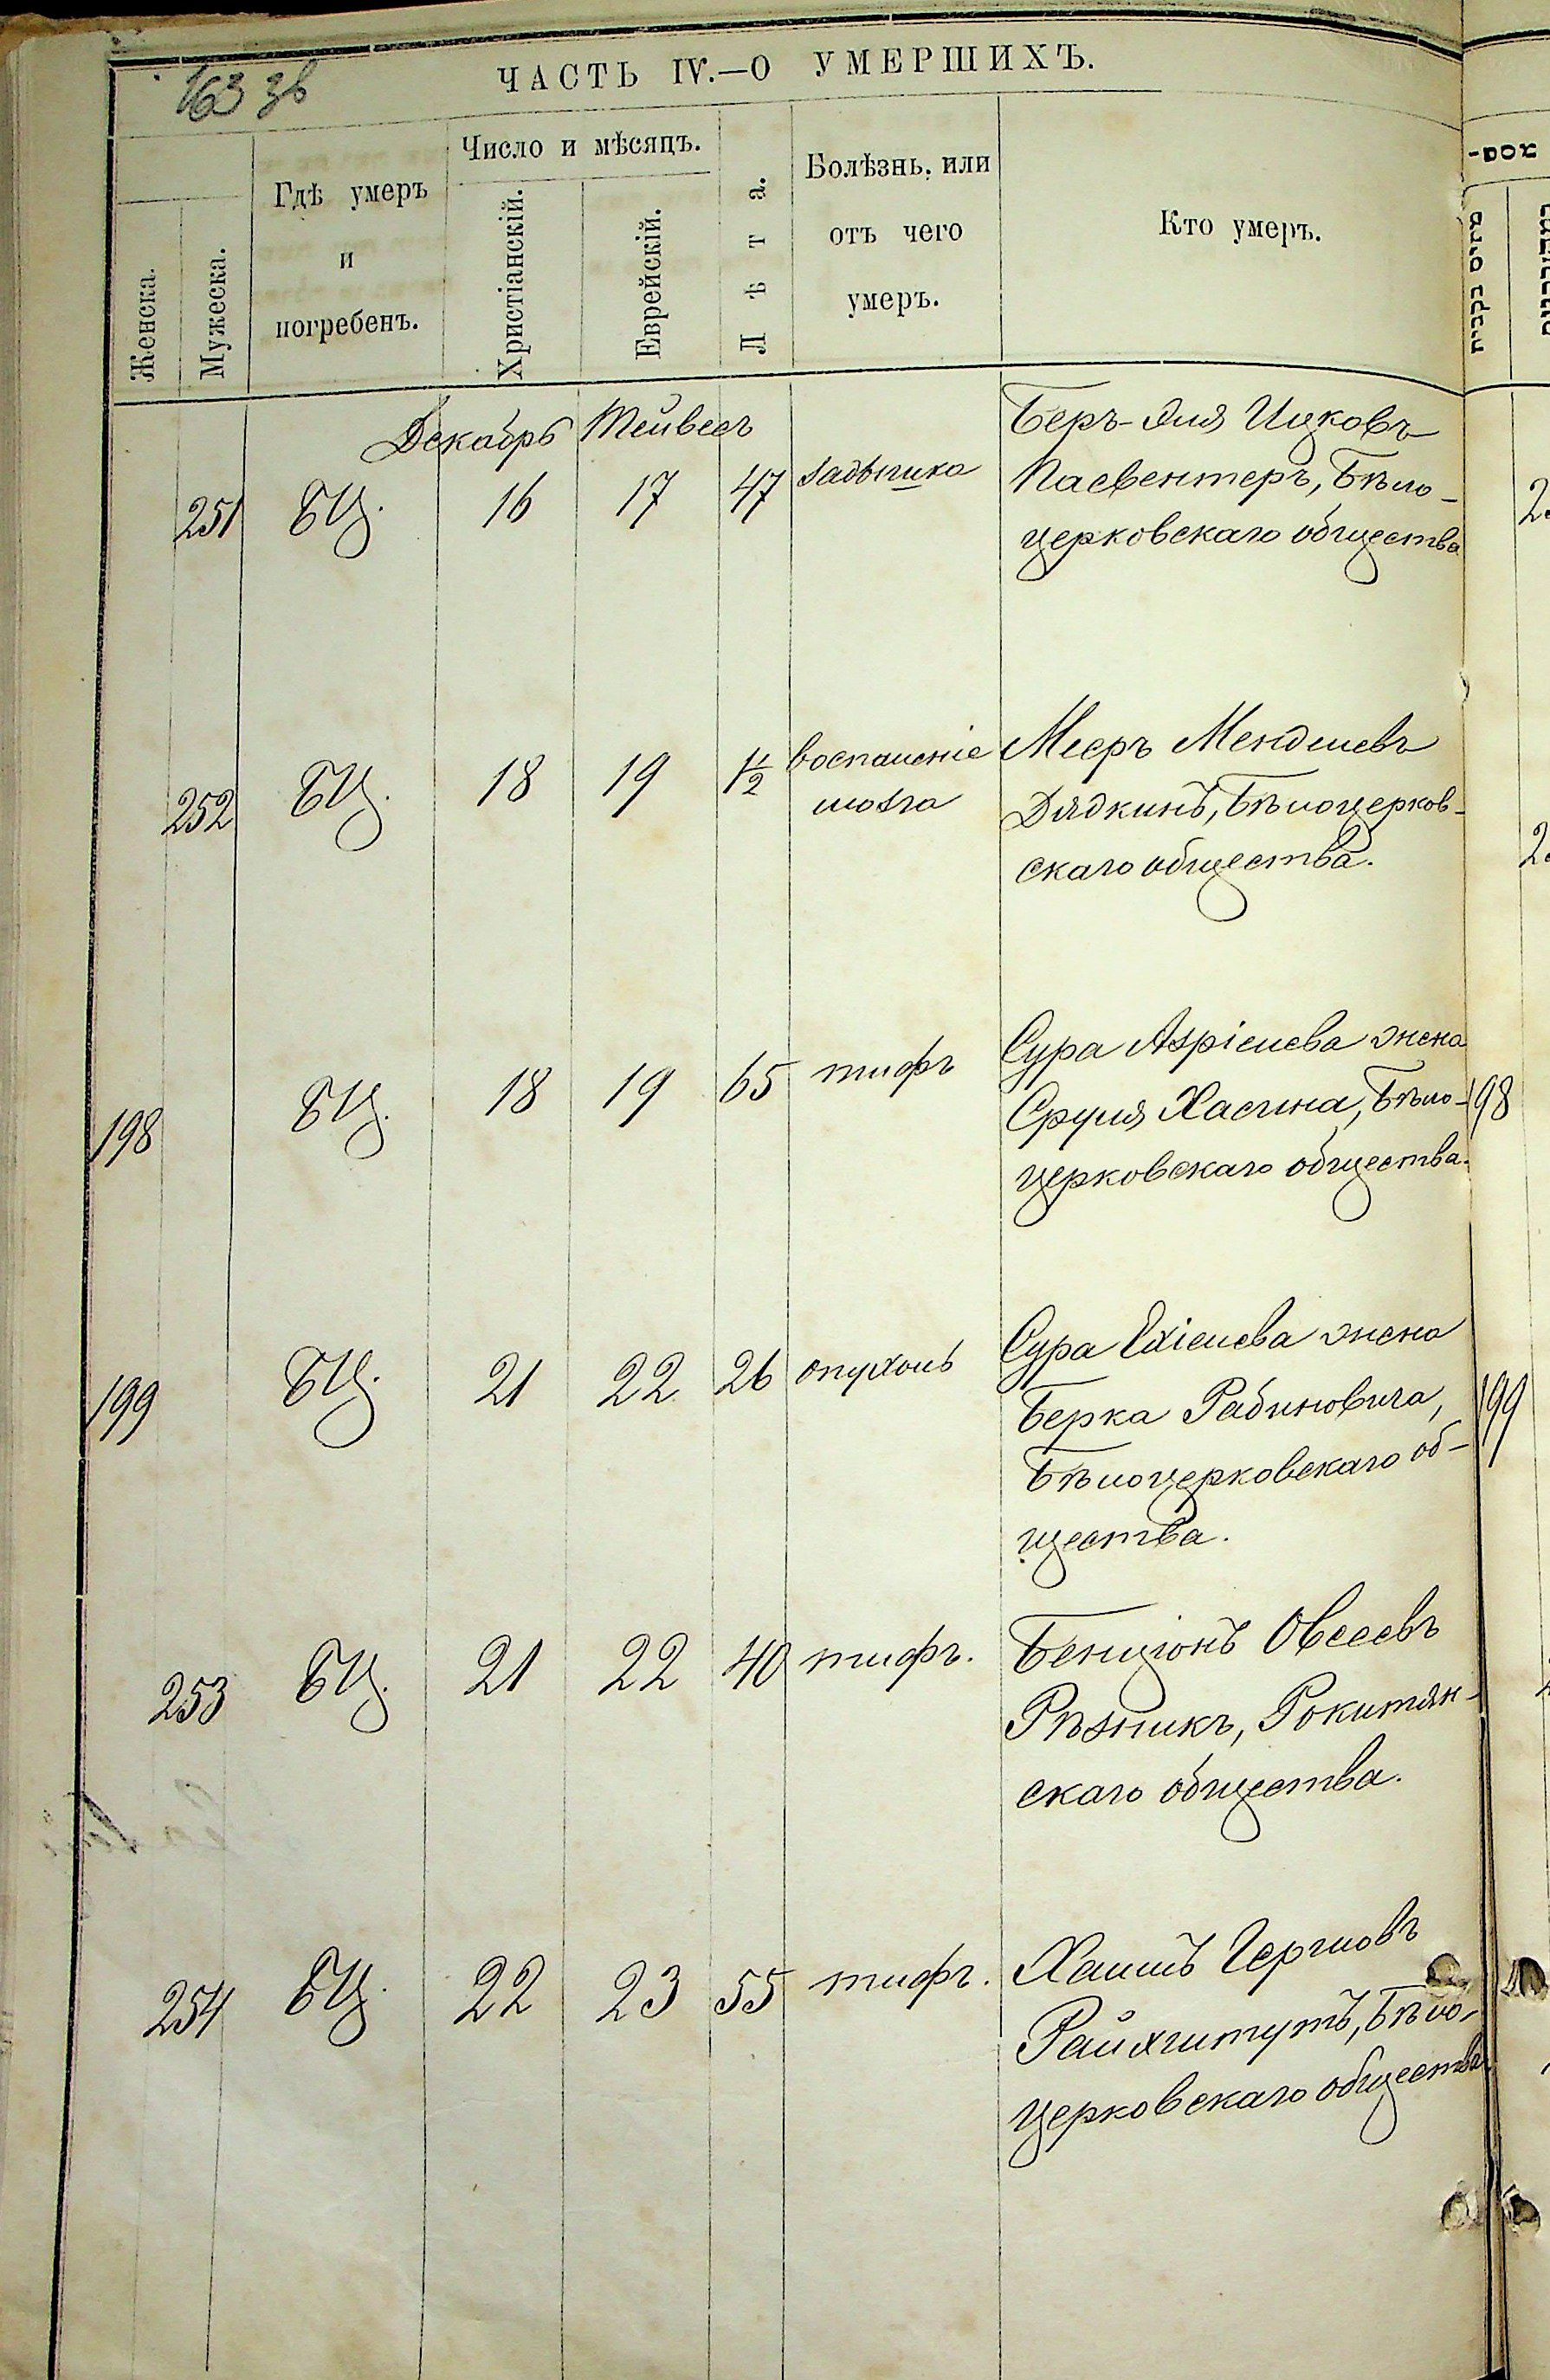 163 зв
ЧАСТЬ IV.—О УМЕРШИХЪ.
Женска.
Мужеска.
Гдѣ умеръ
и
погребенъ.
Число и мѣсяцъ.
Христіанскій.
Еврейскій.
Лѣта.
Болѣзнь, или
отъ чего
умеръ.
Кто умеръ.
Декабрь Тейвесъ
251 БЦ. 16 17 47 задышка
Беръ-Эля Ицковъ
Пасвентеръ, Бѣло-
церковскаго общества
252 БЦ. 18 19 1½ воспаленіе
мозга
Мееръ Менделевъ
Дядкинъ, Бѣлоцерков-
скаго общества.
198 БЦ. 18 19 65 тифъ
Сура Азріелева жена
Сруля Хасина, Бѣло-
церковскаго общества.
198
199 БЦ. 21 22 26 опухоль
Сура Ехіелева жена
Берка Рабиновича,
Бѣлоцерковскаго об-
щества.
199
253 БЦ. 21 22 40 тифъ.
Бенціонъ Овсеевъ
Рѣзникъ, Рокитян-
скаго общества.
254 БЦ. 22 23 55 тифъ.
Хаимъ Гершовъ
Райхштутъ, Бѣло-
церковскаго общества